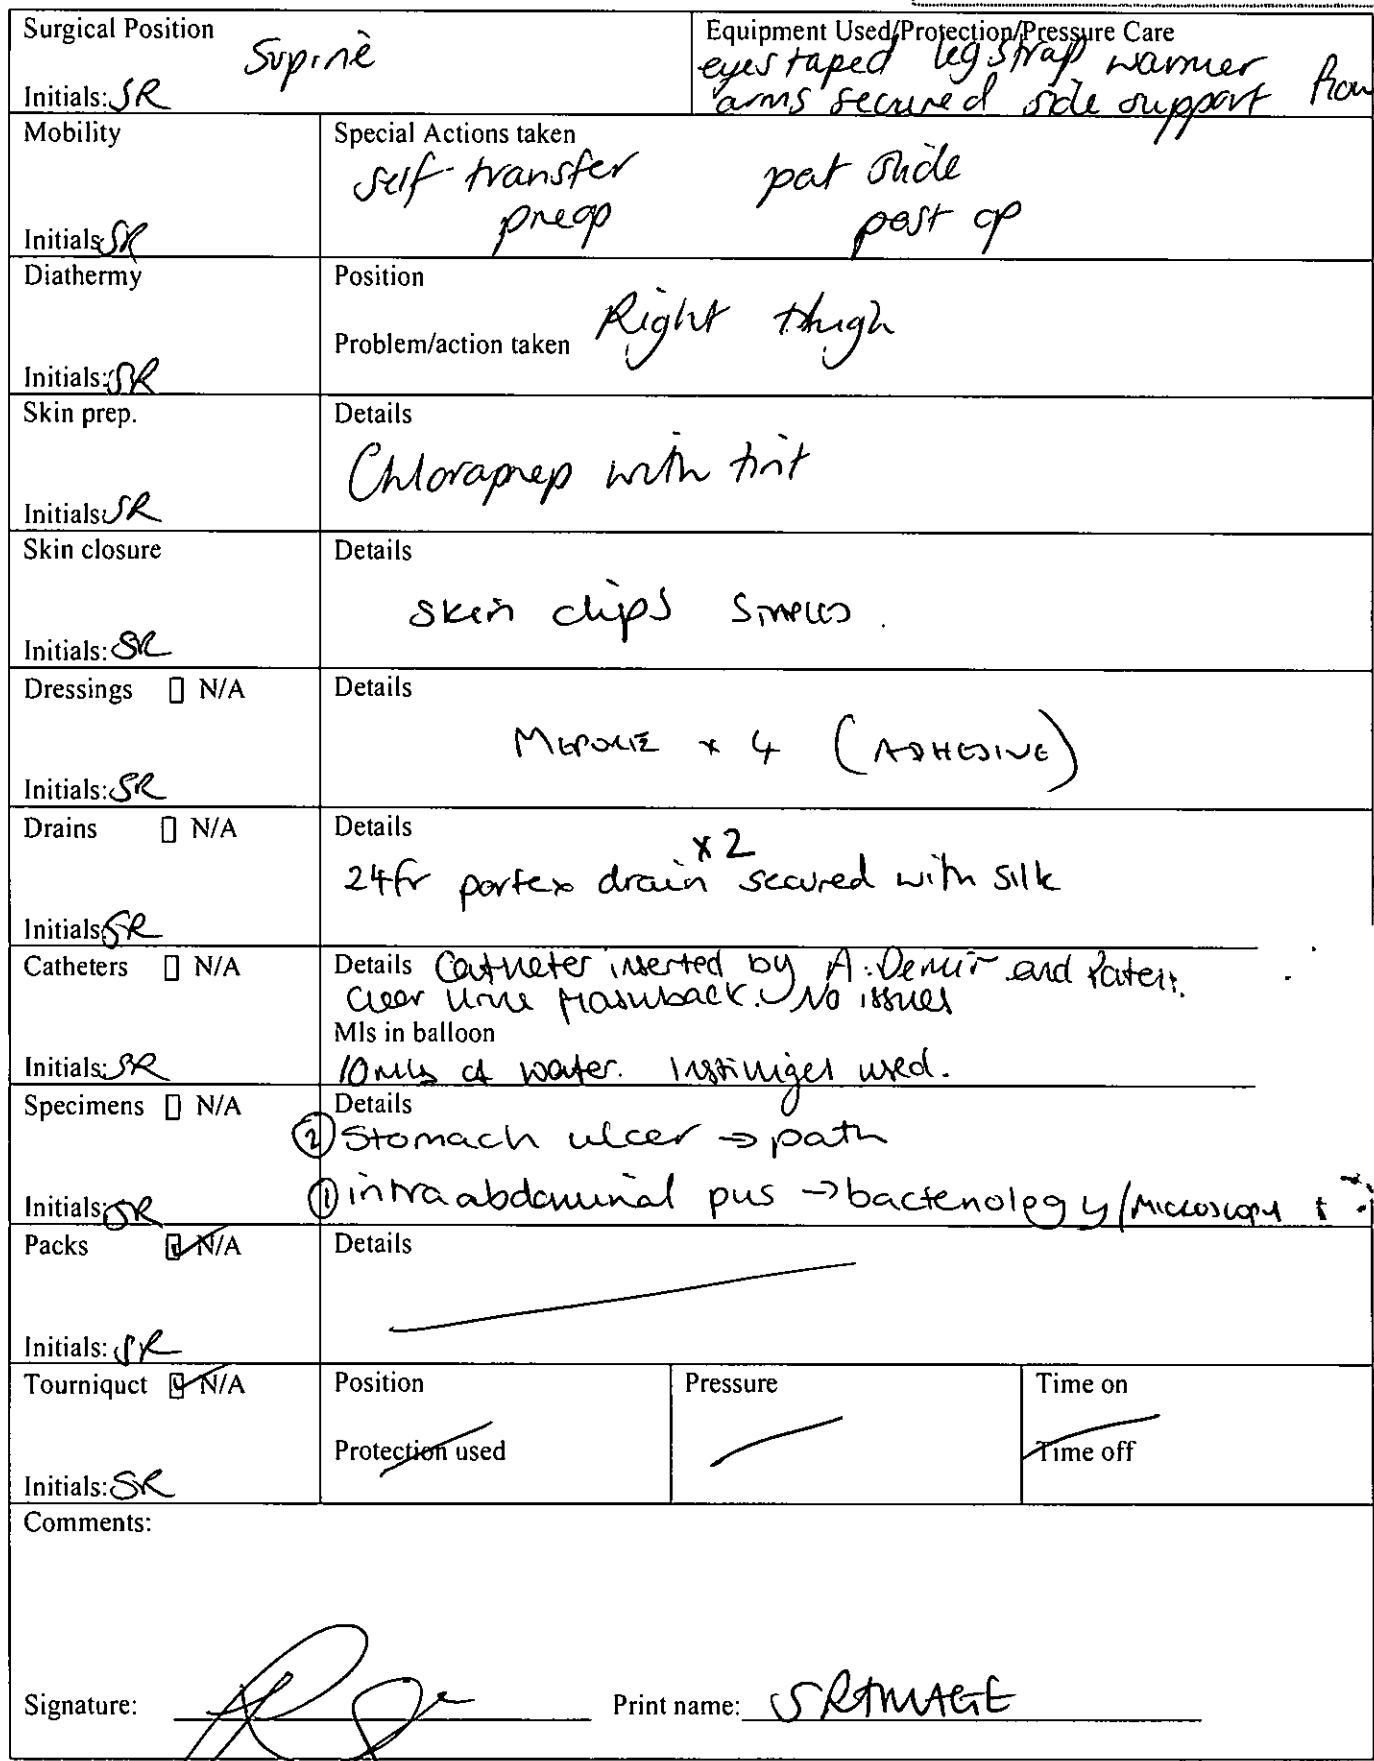 Surgical Position
Supine
Initials: SR
Equipment Used/Protection/Pressure Care
eyes taped leg strap warmer
arms secured side support
Mobility
Initials SR
Special Actions taken
self-transfer pat slide
preop post op
Diathermy
Initials: SR
Position
Right thigh
Problem/action taken
Skin prep.
Initials SR
Details
Chloraprep with tint
Skin closure
Initials: SR
Details
skin clips STAPLES.
Dressings N/A
Initials: SR
Details
MEPORE x 4 (ADHESIVE)
Drains N/A
Initials SR
Details
x2
24fr portex drain secured with silk
Catheters N/A
Initials: SR
Details Catheter inserted by A. Demir and
clear urine flashback. No issues
Mls in balloon
10mls of water. Instillagel used.
Specimens N/A
Initials: SR
Details
② Stomach ulcer → path
① intra abdominal pus → bacteriology/MICROSCOPY +
Packs N/A
Initials: SR
Details
Tourniquet N/A
Initials: SR
Position
Protection used
Pressure
Time on
Time off
Comments:
Signature:
Print name: S RAMAGE